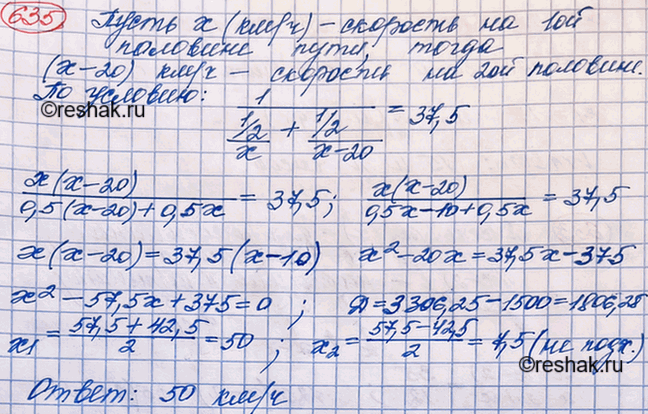 635 Пусть x (км/ч) – скорость на 1ой
половине пути, тогда
(x-20) км/ч – скорость на 2ой половине.
По условию:
1 / ((1/2)/x + (1/2)/(x-20)) = 37,5
x(x-20) / (0,5(x-20)+0,5x) = 37,5; x(x-20) / (0,5x-10+0,5x) = 37,5
x(x-20) = 37,5(x-10) x² -20x = 37,5x-375
x² - 57,5x + 375 = 0 ; Д = 3306,25 - 1500 = 1806,25
x₁ = (57,5+42,5) / 2 = 50 ; x₂ = (57,5-42,5) / 2 = 7,5 (не подх.)
©reshak.ru
Ответ: 50 км/ч
©reshak.ru